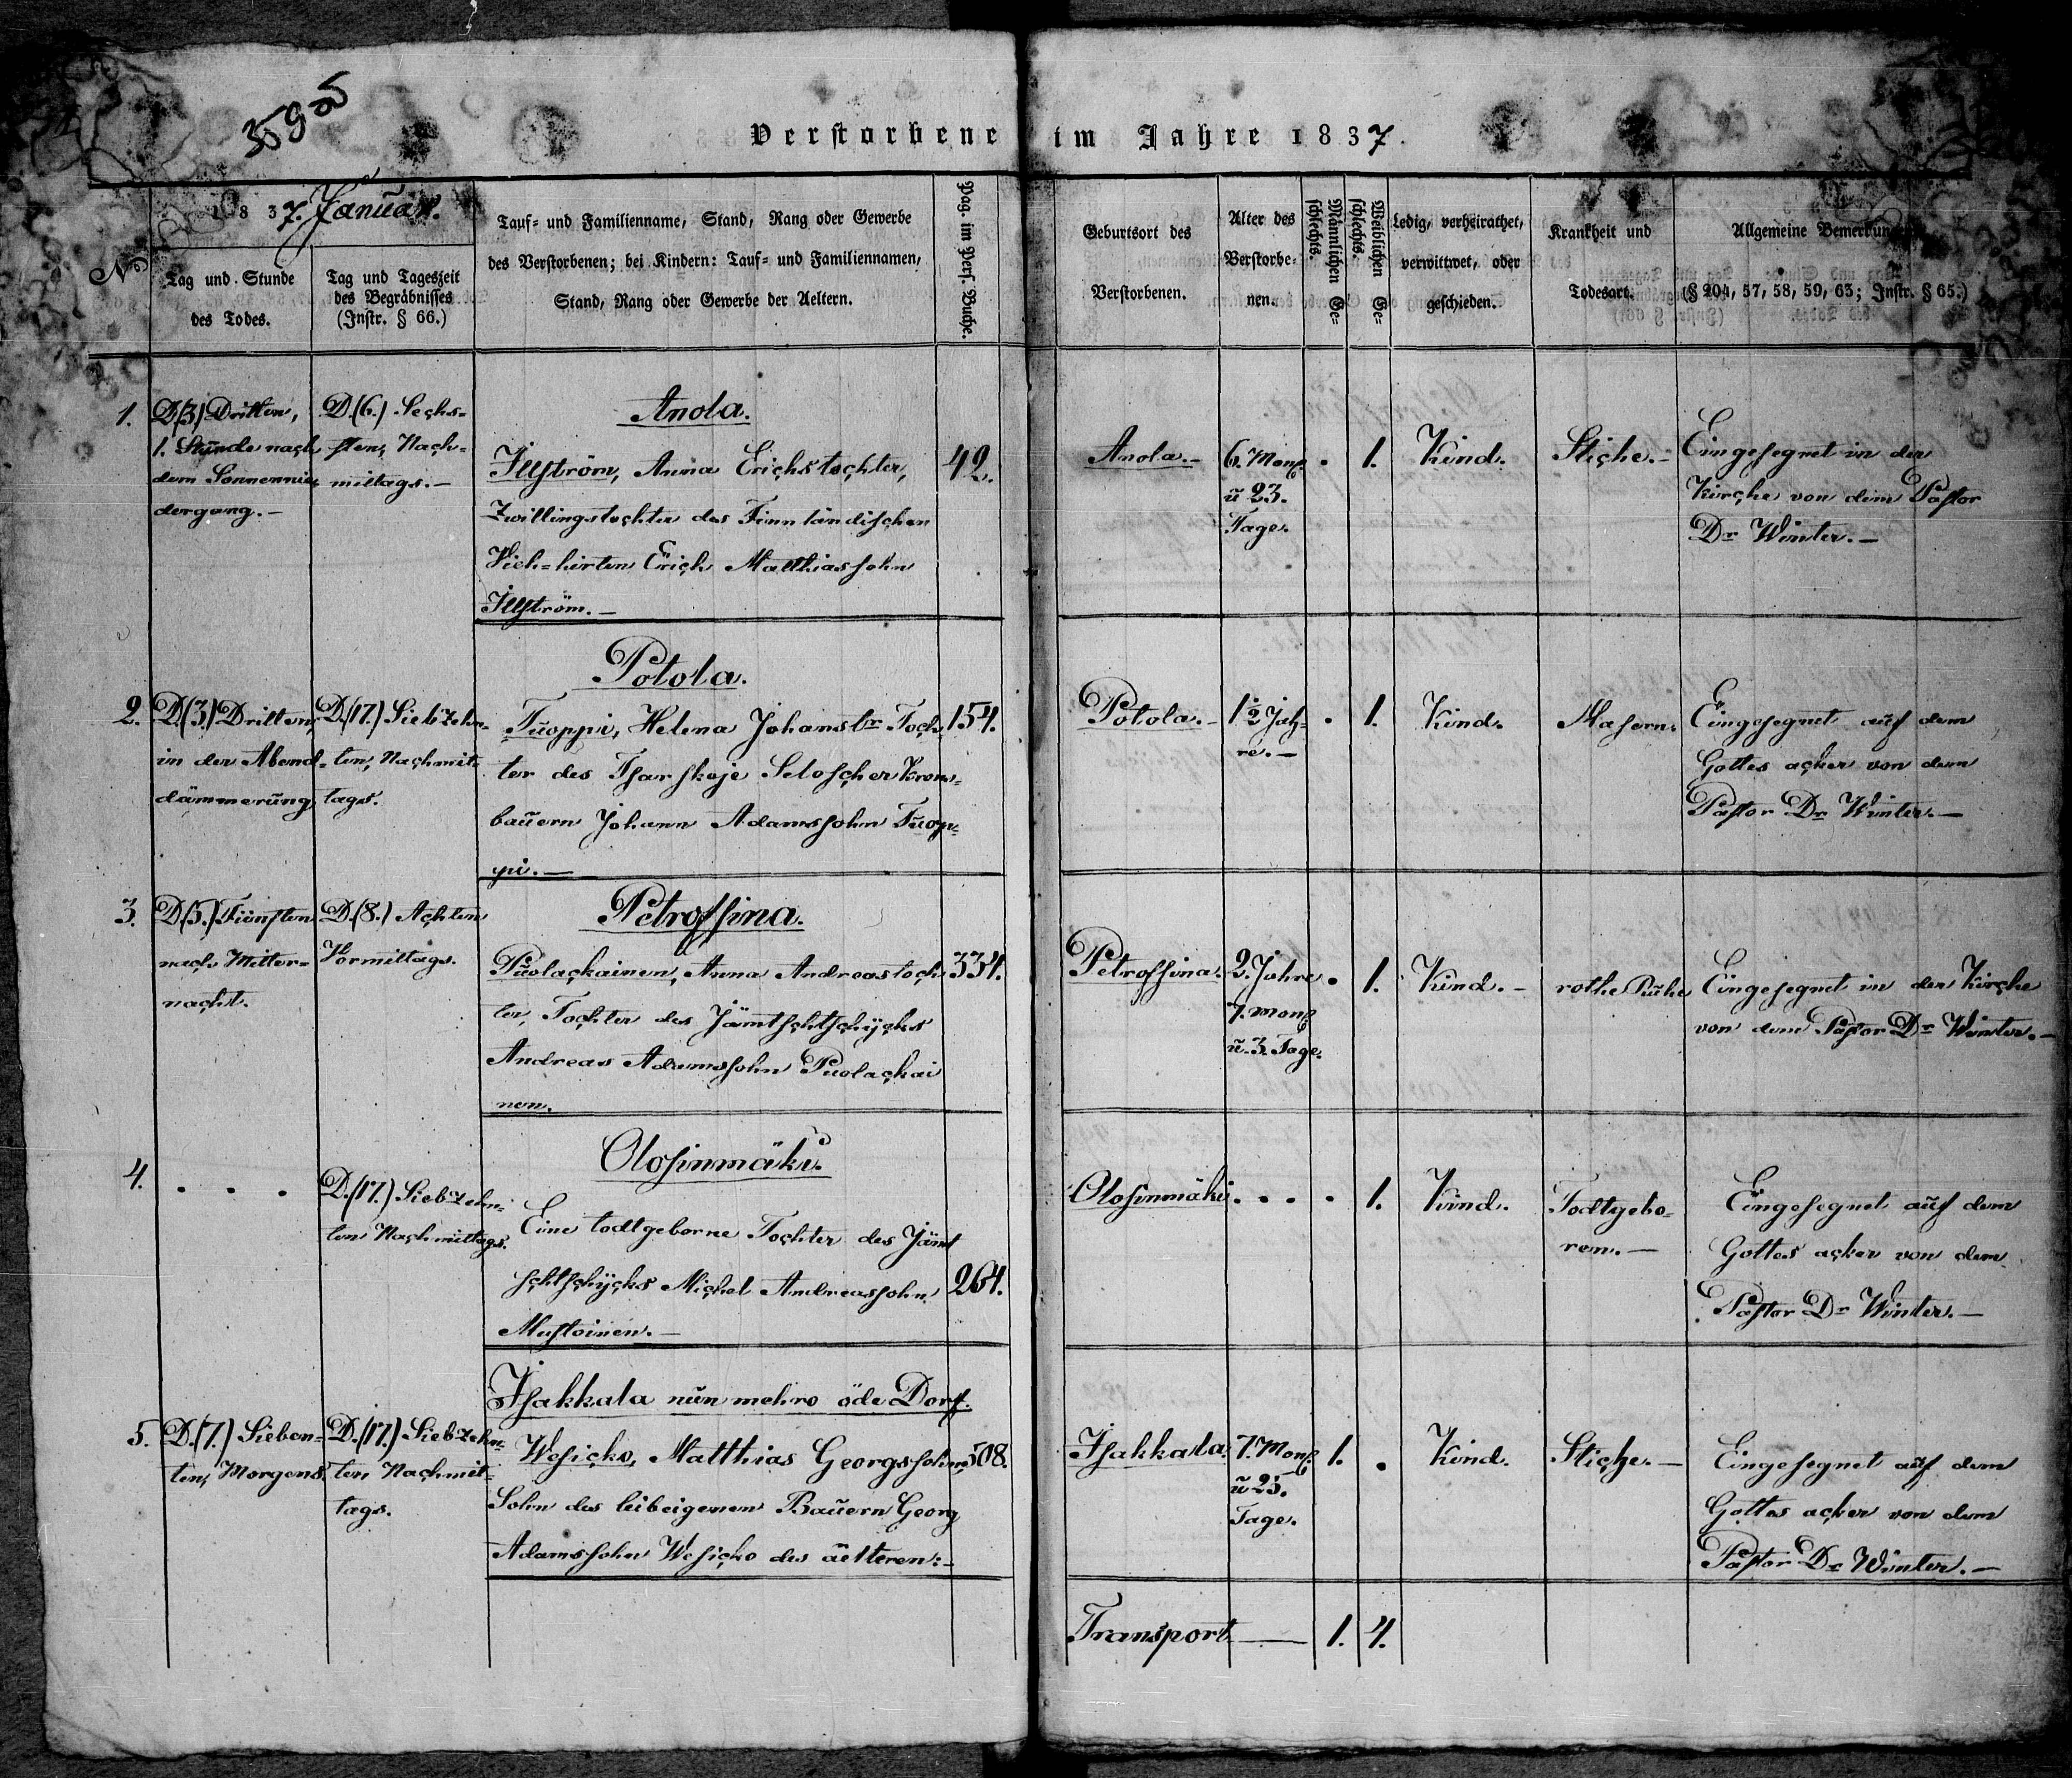 Verstorbene im Jahre 1837.
1837. Januar.
No
Tag und Stunde
des Todes.
Tag und Tageszeit
des Begräbnisses
(Instr. § 66.)
Tauf- und Familienname, Stand, Rang oder Gewerbe
des Verstorbenen; bei Kindern: Tauf- und Familiennamen,
Stand, Rang oder Gewerbe der Aeltern.
Pag. im Pers. Buche.
Geburtsort des
Verstorbenen.
Alter des
Verstorbe-
nen.
Männlichen Ge-
schlechts.
Weiblichen Ge-
schlechts.
Ledig, verheirathet,
verwittwet, oder
geschieden.
Krankheit und
Todesart.
Allgemeine Bemerkungen
(§ 204, 57, 58, 59, 63; Instr. § 65.)
1.
D.(3) Dritten,
1. Stunde nach
dem Sonnennie-
dergang.-
D.(6.) Sechs-
sten, Nach-
mittags.-
Anola.
Illström, Anna Erichstochter,
Zwillingstochter des Finnländischen
Vieh-hirten Erich Matthiassohn
Illström.-
42.
Anola.-
6. Mon.
u 23.
Tage.
.
1.
Kind.
Stiche.-
Eingesegnet in der
Kirche von dem Pastor
Dr Winter.-
2.
D.(3.) Dritten,
in der Abend-
dämmerung
D.(17.) Siebzehn-
ten, Nachmit-
tags.
Potola.
Tuoppi, Helena Johanstr Toch-
ter des Tsarskoje Seloscher Krons-
bauern Johann Adamssohn Tuop-
pi.-
154.
Potola.-
1½ Jah-
re.-
.
1.
Kind.
Masern.
Eingesegnet auf dem
Gottes acker von dem
Pastor Dr Winter.-
3.
D.(5.) Fünften
nach Mitter-
nacht.
D.(8.) Achten
Vormittags.
Petrossina.
Puolackainen, Anna Andreastoch-
ter, Tochter des Jämtschtschicks
Andreas Adamssohn Puolackai
nen.
334.
Petrossina.
2. Jahre
7. Mon.
u. 3. Tage.
.
1.
Kind.-
rothe Ruhr
Eingesegnet in der Kirche
von dem Pastor Dr Winter.-
4.
. . .
D.(17.) Siebzehn-
ten Nachmittags.
Olosinmäki
Eine todtgeborne Tochter des Jämt
schtschicks Michel Andreassohn
Mustoinen.-
264.
Olosinmäki
. . .
.
1.
Kind.
Todtgebo-
ren.-
Eingesegnet auf dem
Gottes acker von dem
Pastor Dr Winter.-
5.
D.(7.) Sieben-
ten, Morgens
D.(17.) Siebzehn-
ten Nachmit-
tags.
Isakkala nun mehro öde Dorf.
Wesicko, Matthias Georgssohn,
Sohn des leibeigenen Bauern Georg
Adamssohn Wesicko des älteren.-
508.
Isakkala.
7. Mon.
u 25.
Tage.
1.
.
Kind.
Stiche.-
Eingesegnet auf dem
Gottes acker von dem
Pastor Dr Winter.-
Transport — 1. 4.